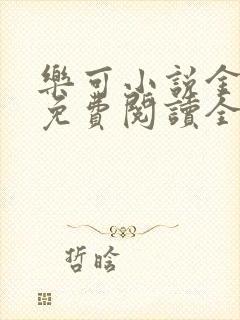 樂可小說全
免費閱讀全
哲晗